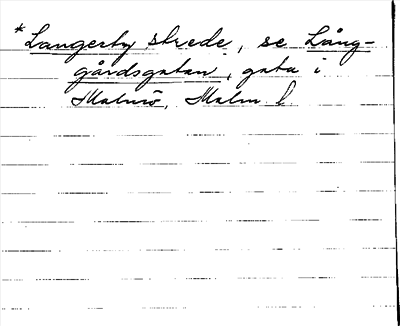 *Langerby strede, se Lång-
gårdsgatan, gata i
Malmö, Malm l